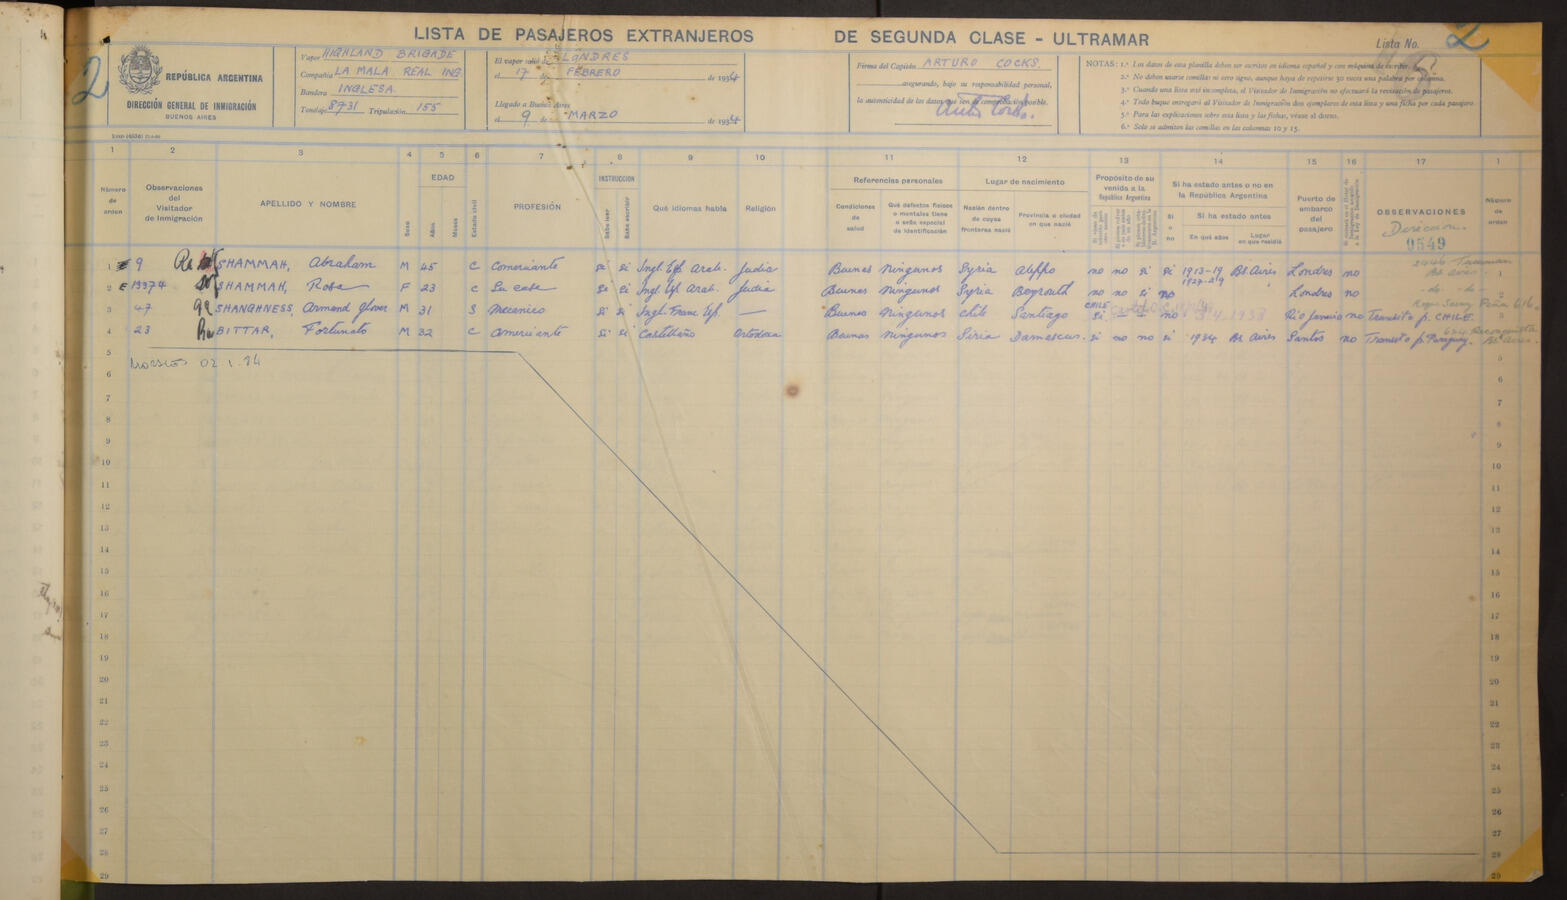 LISTA DE PASAJEROS EXTRANJEROS DE SEGUNDA CLASE - ULTRAMAR
Lista No. 2
2
REPÚBLICA ARGENTINA
DIRECCIÓN GENERAL DE INMIGRACIÓN
BUENOS AIRES
Vapor HIGHLAND BRIGADE
Compañía LA MALA REAL ING
Bandera INGLESA.
Tonelaje 8731 Tripulación 155
El vapor salió de LONDRES
el 17 de FEBRERO de 1934
Llegado a Buenos Aires
el 9 de MARZO de 1934
Firma del Capitán ARTURO COCKS.
asegurando, bajo su responsabilidad personal,
la autenticidad de los datos que son de comprobación posible.
NOTAS: 1.ª Los datos de esta planilla deben ser escritos en idioma español y con máquina de escribir.
2.ª No deben usarse comillas ni otro signo, aunque haya de repetirse 30 veces una palabra por columna.
3.ª Cuando una lista esté incompleta, el Visitador de Inmigración no efectuará la revisación de pasajeros.
4.ª Todo buque entregará al Visitador de Inmigración dos ejemplares de esta lista y una ficha por cada pasajero
5.ª Para las explicaciones sobre esta lista y las fichas, véase al dorso.
6.ª Solo se admiten las comillas en las columnas 10 y 15.
1 2 3 4 5 6 7 8 9 10 11 12 13 14 15 16 17 1
Número de orden
Observaciones del Visitador de Inmigración
APELLIDO Y NOMBRE
Sexo
EDAD
Años
Meses
Estado civil
PROFESIÓN
INSTRUCCION
Sabe leer
Sabe escribir
Qué idiomas habla
Religión
Referencias personales
Condiciones de salud
Qué defectos físicos o mentales tiene o seña especial de identificación
Lugar de nacimiento
Nación dentro de cuyas fronteras nació
Provincia o ciudad en que nació
Propósito de su venida a la República Argentina
Si ha estado antes o no en la República Argentina
Si o no
Si ha estado antes
En qué años
Lugar en que residió
Puerto de embarco del pasajero
OBSERVACIONES
Dirección.
0549
Número de orden
1 9 SHAMMAH, Abraham M 45 C Comerciante si si Ingl. Esp. Arab. Judia Buenas Ningunos Syria Aleppo no no si si 1913-19 Bs Aires Londres no 1
1927-29
2 13374 SHAMMAH, Rosa F 23 C Su casa si si Ingl Esp Arab. Judia Buenas Ningunos Syria Beyrouth no no si no Londres no -do- -do- 2
3 47 SHANGHNESS, Armond Glover M 31 S Mecanico si si Ingl. Franc. Esp. — Buenas Ningunos Chile Santiago CHILE si — — no Rio Janeiro no Transito p. CHILE 3
4 23 BITTAR, Fortunato M 32 C Comerciante si si Castellano Ortodoxa Buenas Ningunos Siria Damascus. si no no si 1934 Bs Aires Santos no Transito p. Paraguay. Bs Aires.
5 5
6 6
7 7
8 8
9 9
10 10
11 11
12 12
13 13
14 14
15 15
16 16
17 17
18 18
19 19
20 20
21 21
22 22
23 23
24 24
25 25
26 26
27 27
28 28
29 29